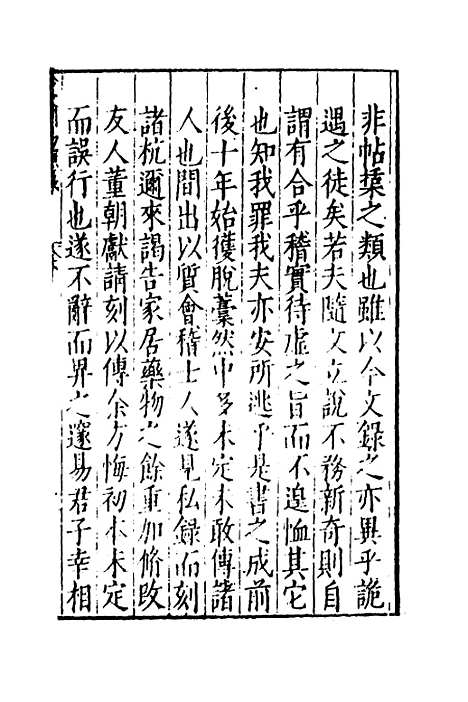 非帖槩之類也雖以今文錄之亦異乎詭
遇之徒矣若夫隨文立說不務新奇則自
謂有合乎稽實待虛之旨而不遑恤其它
也知我罪我夫亦安所逃乎是書之成前
後十年始獲脫藁然中多未定未敢傳諸
人也間出以質會稽士人遂見私錄而刻
諸杭邇來謁告家居藥物之餘重加修改
友人董朝獻請刻以傳余方悔初本未定
而誤行也遂不辭而畀之邃易君子幸相